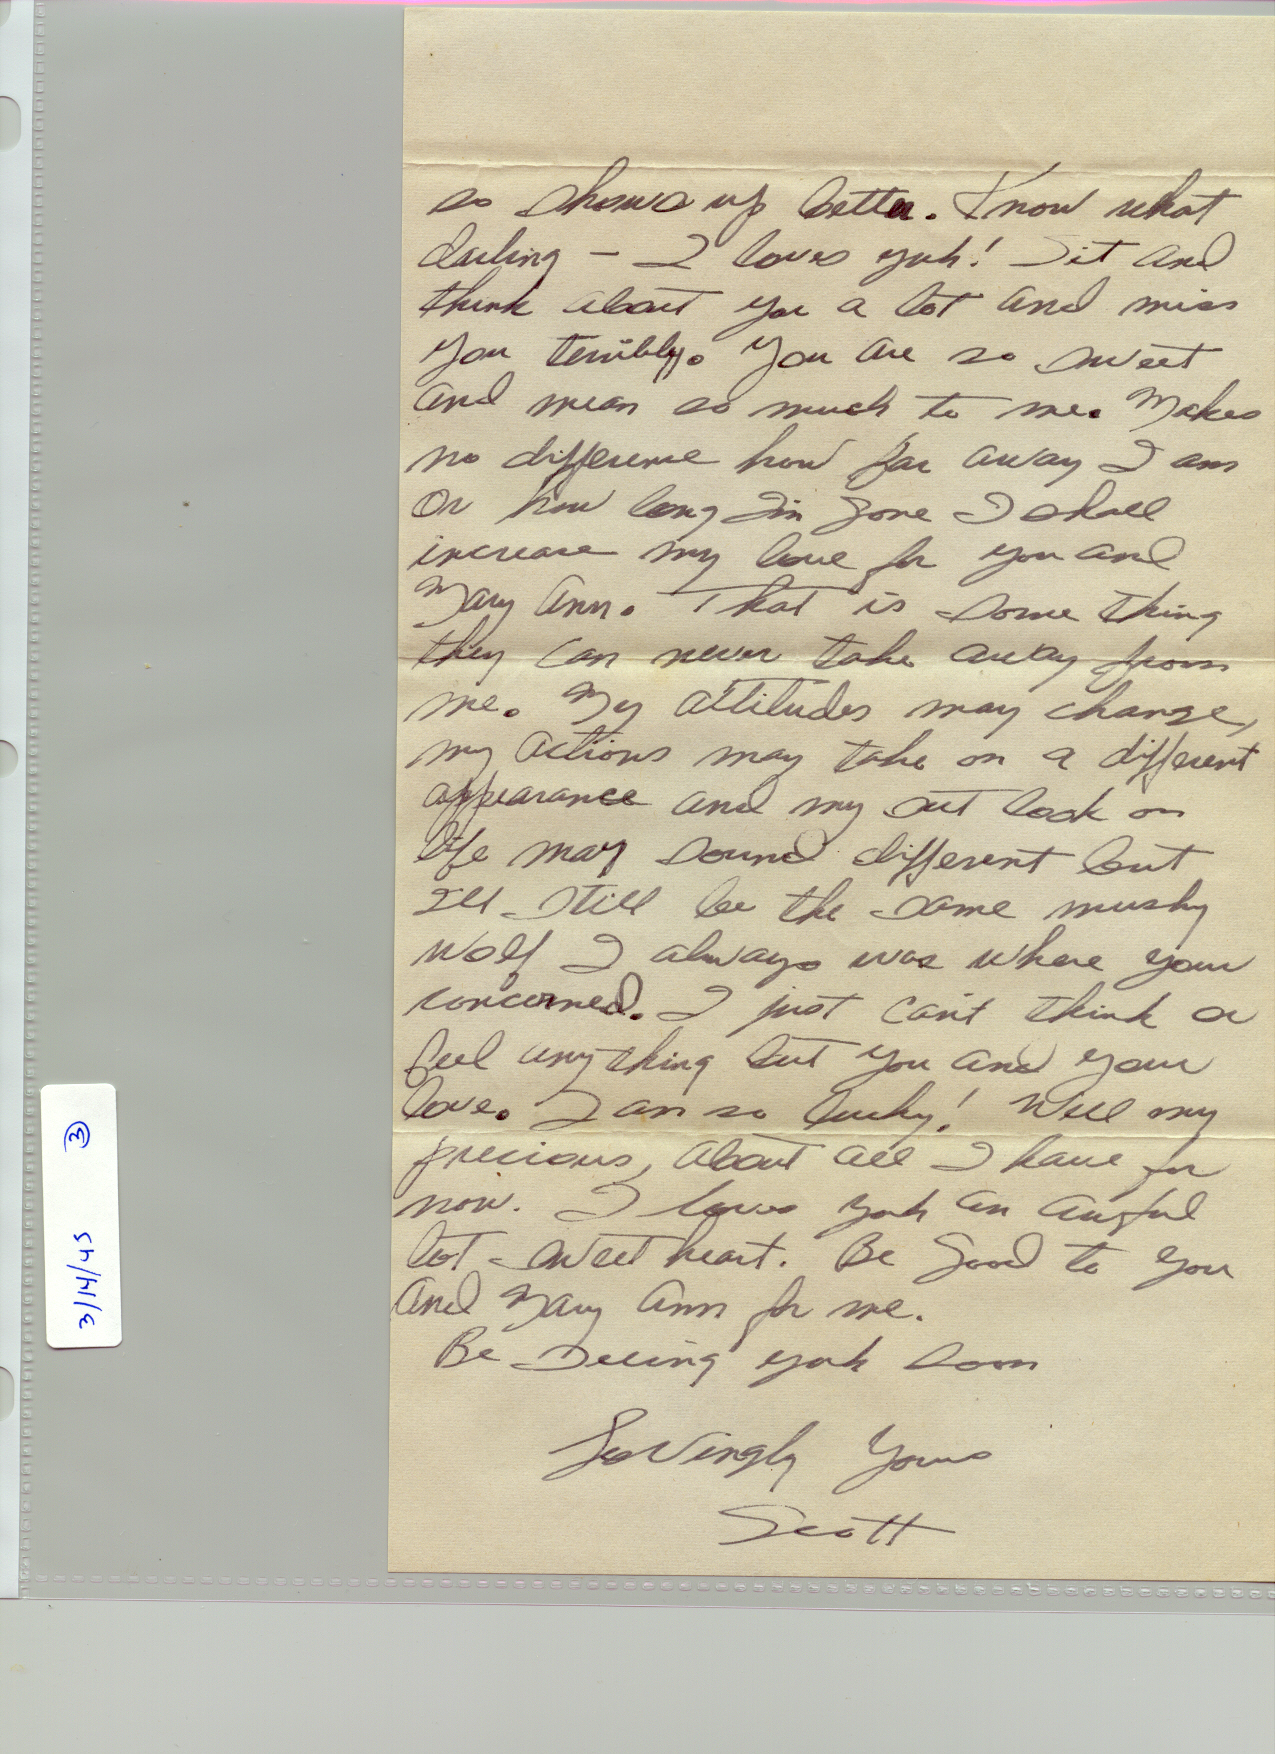 so shows up better. Know what
darling – I loves yuh! Sit and
think about you a lot and miss
you terribly. You are so sweet
and mean so much to me. Makes
no difference how far away I am
or how long I'm gone I shall
increase my love for you and
Mary Ann. That is some thing
they can never take away from
me. My attitudes may change,
my actions may take on a different
appearance and my out look on
life may sound different but
I'll still be the same mushy
wolf I always was where your
concerned. I just can't think or
feel anything but you and your
love. I am so lucky! Well my
precious, about all I have for
now. I loves yuh an awful
lot sweet heart. Be good to you
and Mary Ann for me.
Be Seeing yuh soon
Lovingly Yours
Scott
3/14/45 ③